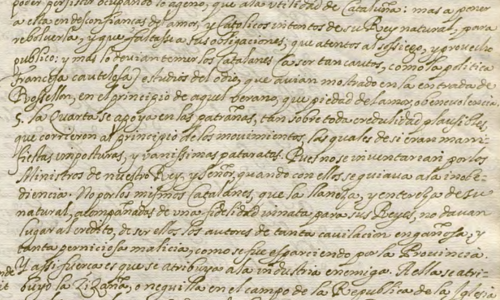 poder persistir ocupando lo ageno, que a la utilidad de Cataluña: mas a poner
a esta en desconfianças del amor, y Catolicos intentos de su Rey natural, para
rebolverla, y que faltasse a sus obligaciones, que atentos al sossiego, y provecho
publico; y mas lo devian temer los Catalanes (a ser tan cautos, como la politica
francesa cautelosa) estudios del odio, que avian mostrado en la entrada de
Rossellon, en el principio de aquel verano, que piedad del amor, o benevolencia
5. La quarta se apoya en las patrañas, tan sobre toda credulidad plausibles,
que corrieron al principio de los movimientos, las quales de si eran mani-
fiestas imposturas, y vanissimas pataratas. Pues no se inventarian por los
Ministros de nuestro Rey, y Señor, quando con ellos se guiava a la inobe-
diencia. No por los mismos Catalanes, que la llaneza, y entereza de su
natural, acompañadas de una fidelidad innata para sus Reyes, no davan
lugar al credito, de ser ellos los autores de tanta cavilacion engañosa, y
tanta perniciosa malicia, como se fue esparciendo por la Provincia.
Y assi fuerça es que se atribuya a la industria enemiga. A ella se atri-
buyo la Zizaña, o neguilla en el campo de la Republica de la Iglesia